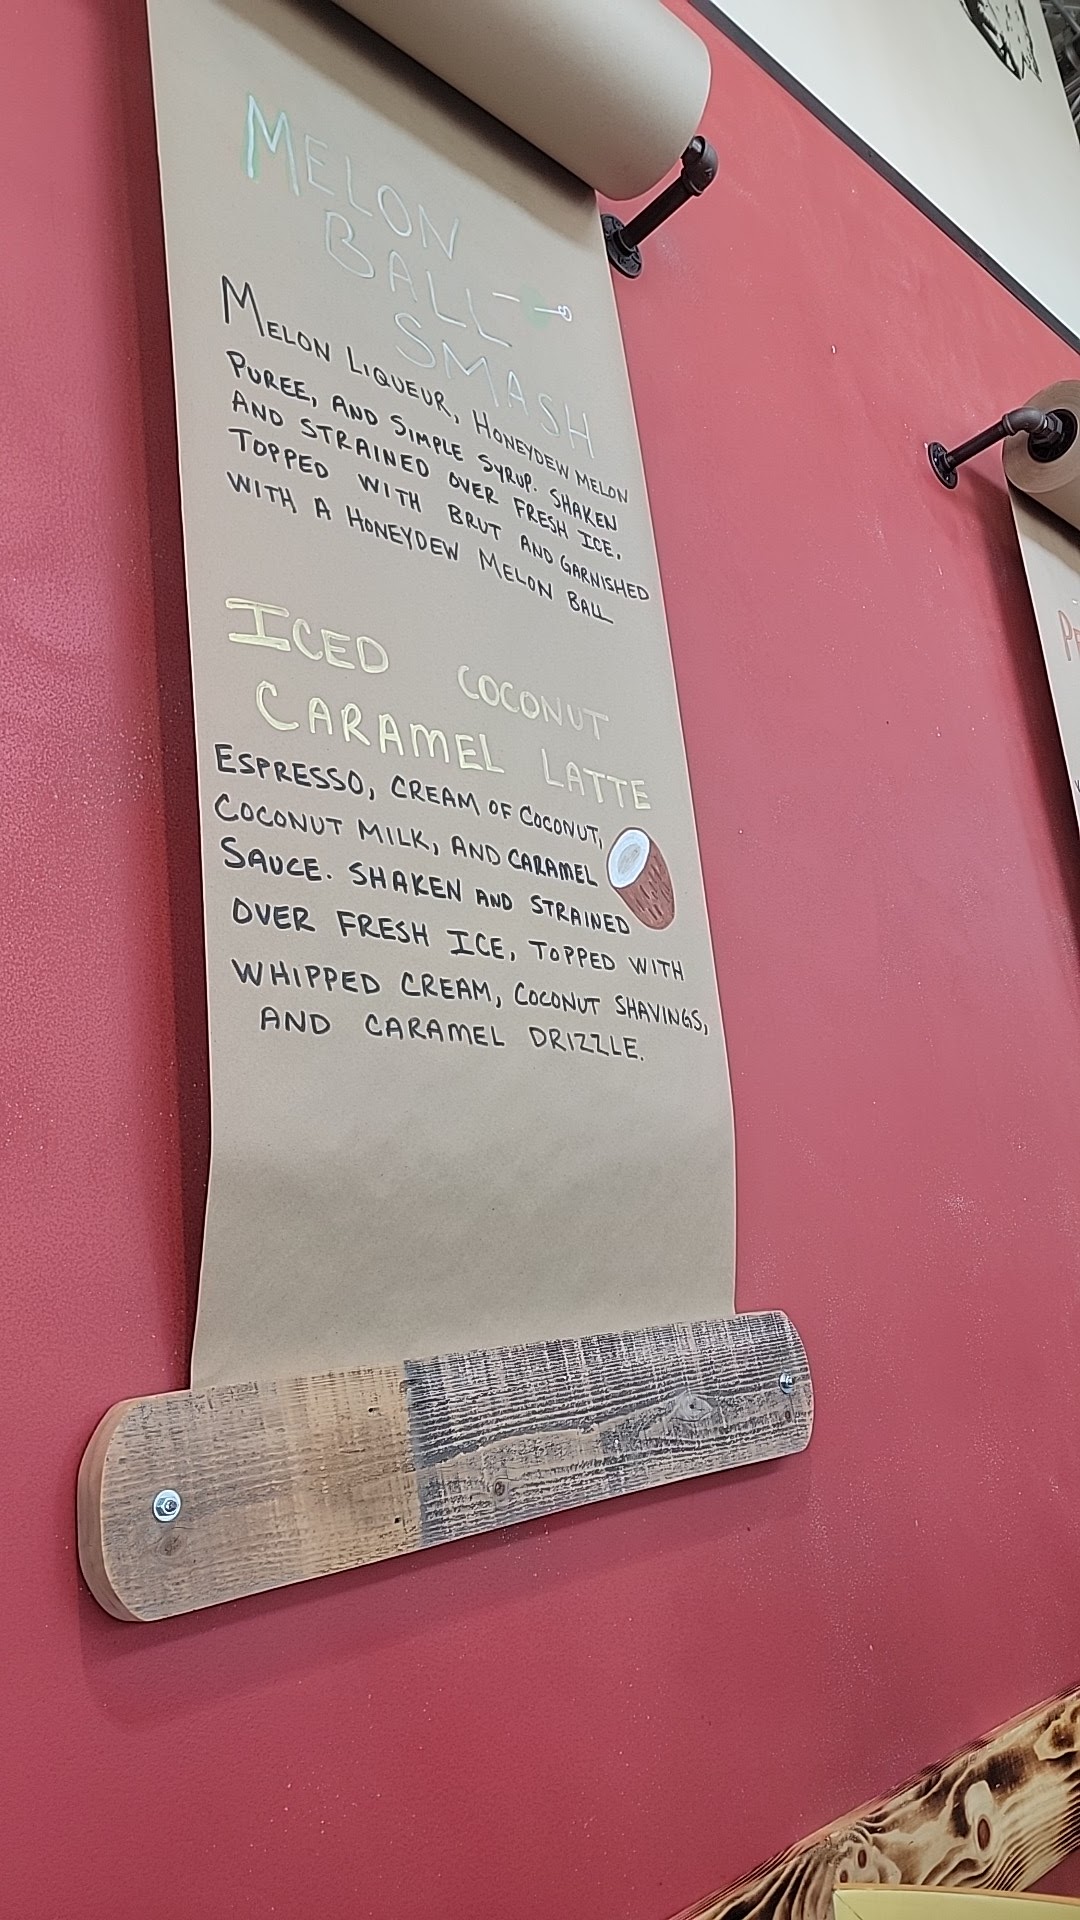 MELON
BALL
SMASH
MELON LIQUEUR, HONEYDEW MELON
PUREE, AND SIMPLE SYRUP. SHAKEN
AND STRAINED OVER FRESH ICE.
TOPPED WITH BRUT AND GARNISHED
WITH A HONEYDEW MELON BALL
ICED COCONUT
CARAMEL LATTE
ESPRESSO, CREAM OF COCONUT,
COCONUT MILK, AND CARAMEL
SAUCE. SHAKEN AND STRAINED
OVER FRESH ICE, TOPPED WITH
WHIPPED CREAM, COCONUT SHAVINGS,
AND CARAMEL DRIZZLE.